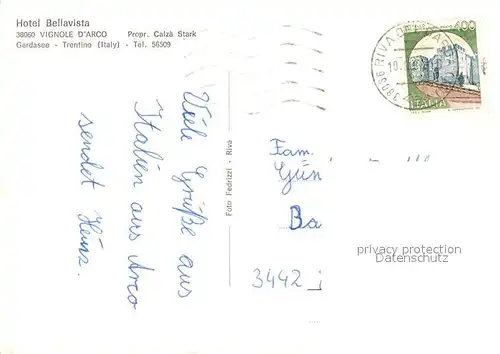 Hotel Bellavista
38060 VIGNOLE D'ARCO Propr. Calzà Stark
Gardasee - Trentino (Italy) - Tel. 56509
Viele Grüße aus
Italien aus Arco
sendet Heinz.
Foto Fedrizzi - Riva
400
ITALIA
38066 RIVA
Fam.
Gün
Ba
3442
privacy protection
Datenschutz